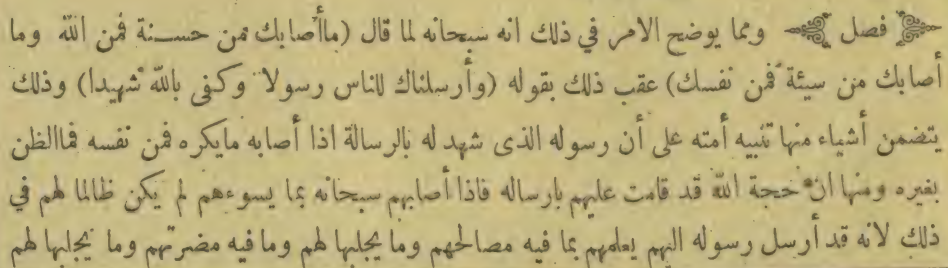 فصل ومما يوضح الامر في ذلك انه سبحانه لما قال (ماأصابك من حسنة فمن الله وما
أصابك من سيئة فمن نفسك) عقب ذلك بقوله (وأرسلناك للناس رسولا وكفى بالله شهيدا) وذلك
يتضمن أشياء منها تنبيه أمته على أن رسوله الذى شهد له بالرسالة اذا أصابه مايكره فمن نفسه فماالظن
بغيره ومنها ان حجة الله قد قامت عليهم بارساله فاذا أصابهم سبحانه بما يسوءهم لم يكن ظالما لهم في
ذلك لانه قد أرسل رسوله اليهم يعلمهم بما فيه مصالحهم وما يجلبها لهم وما فيه مضرتهم وما يجلبها لهم